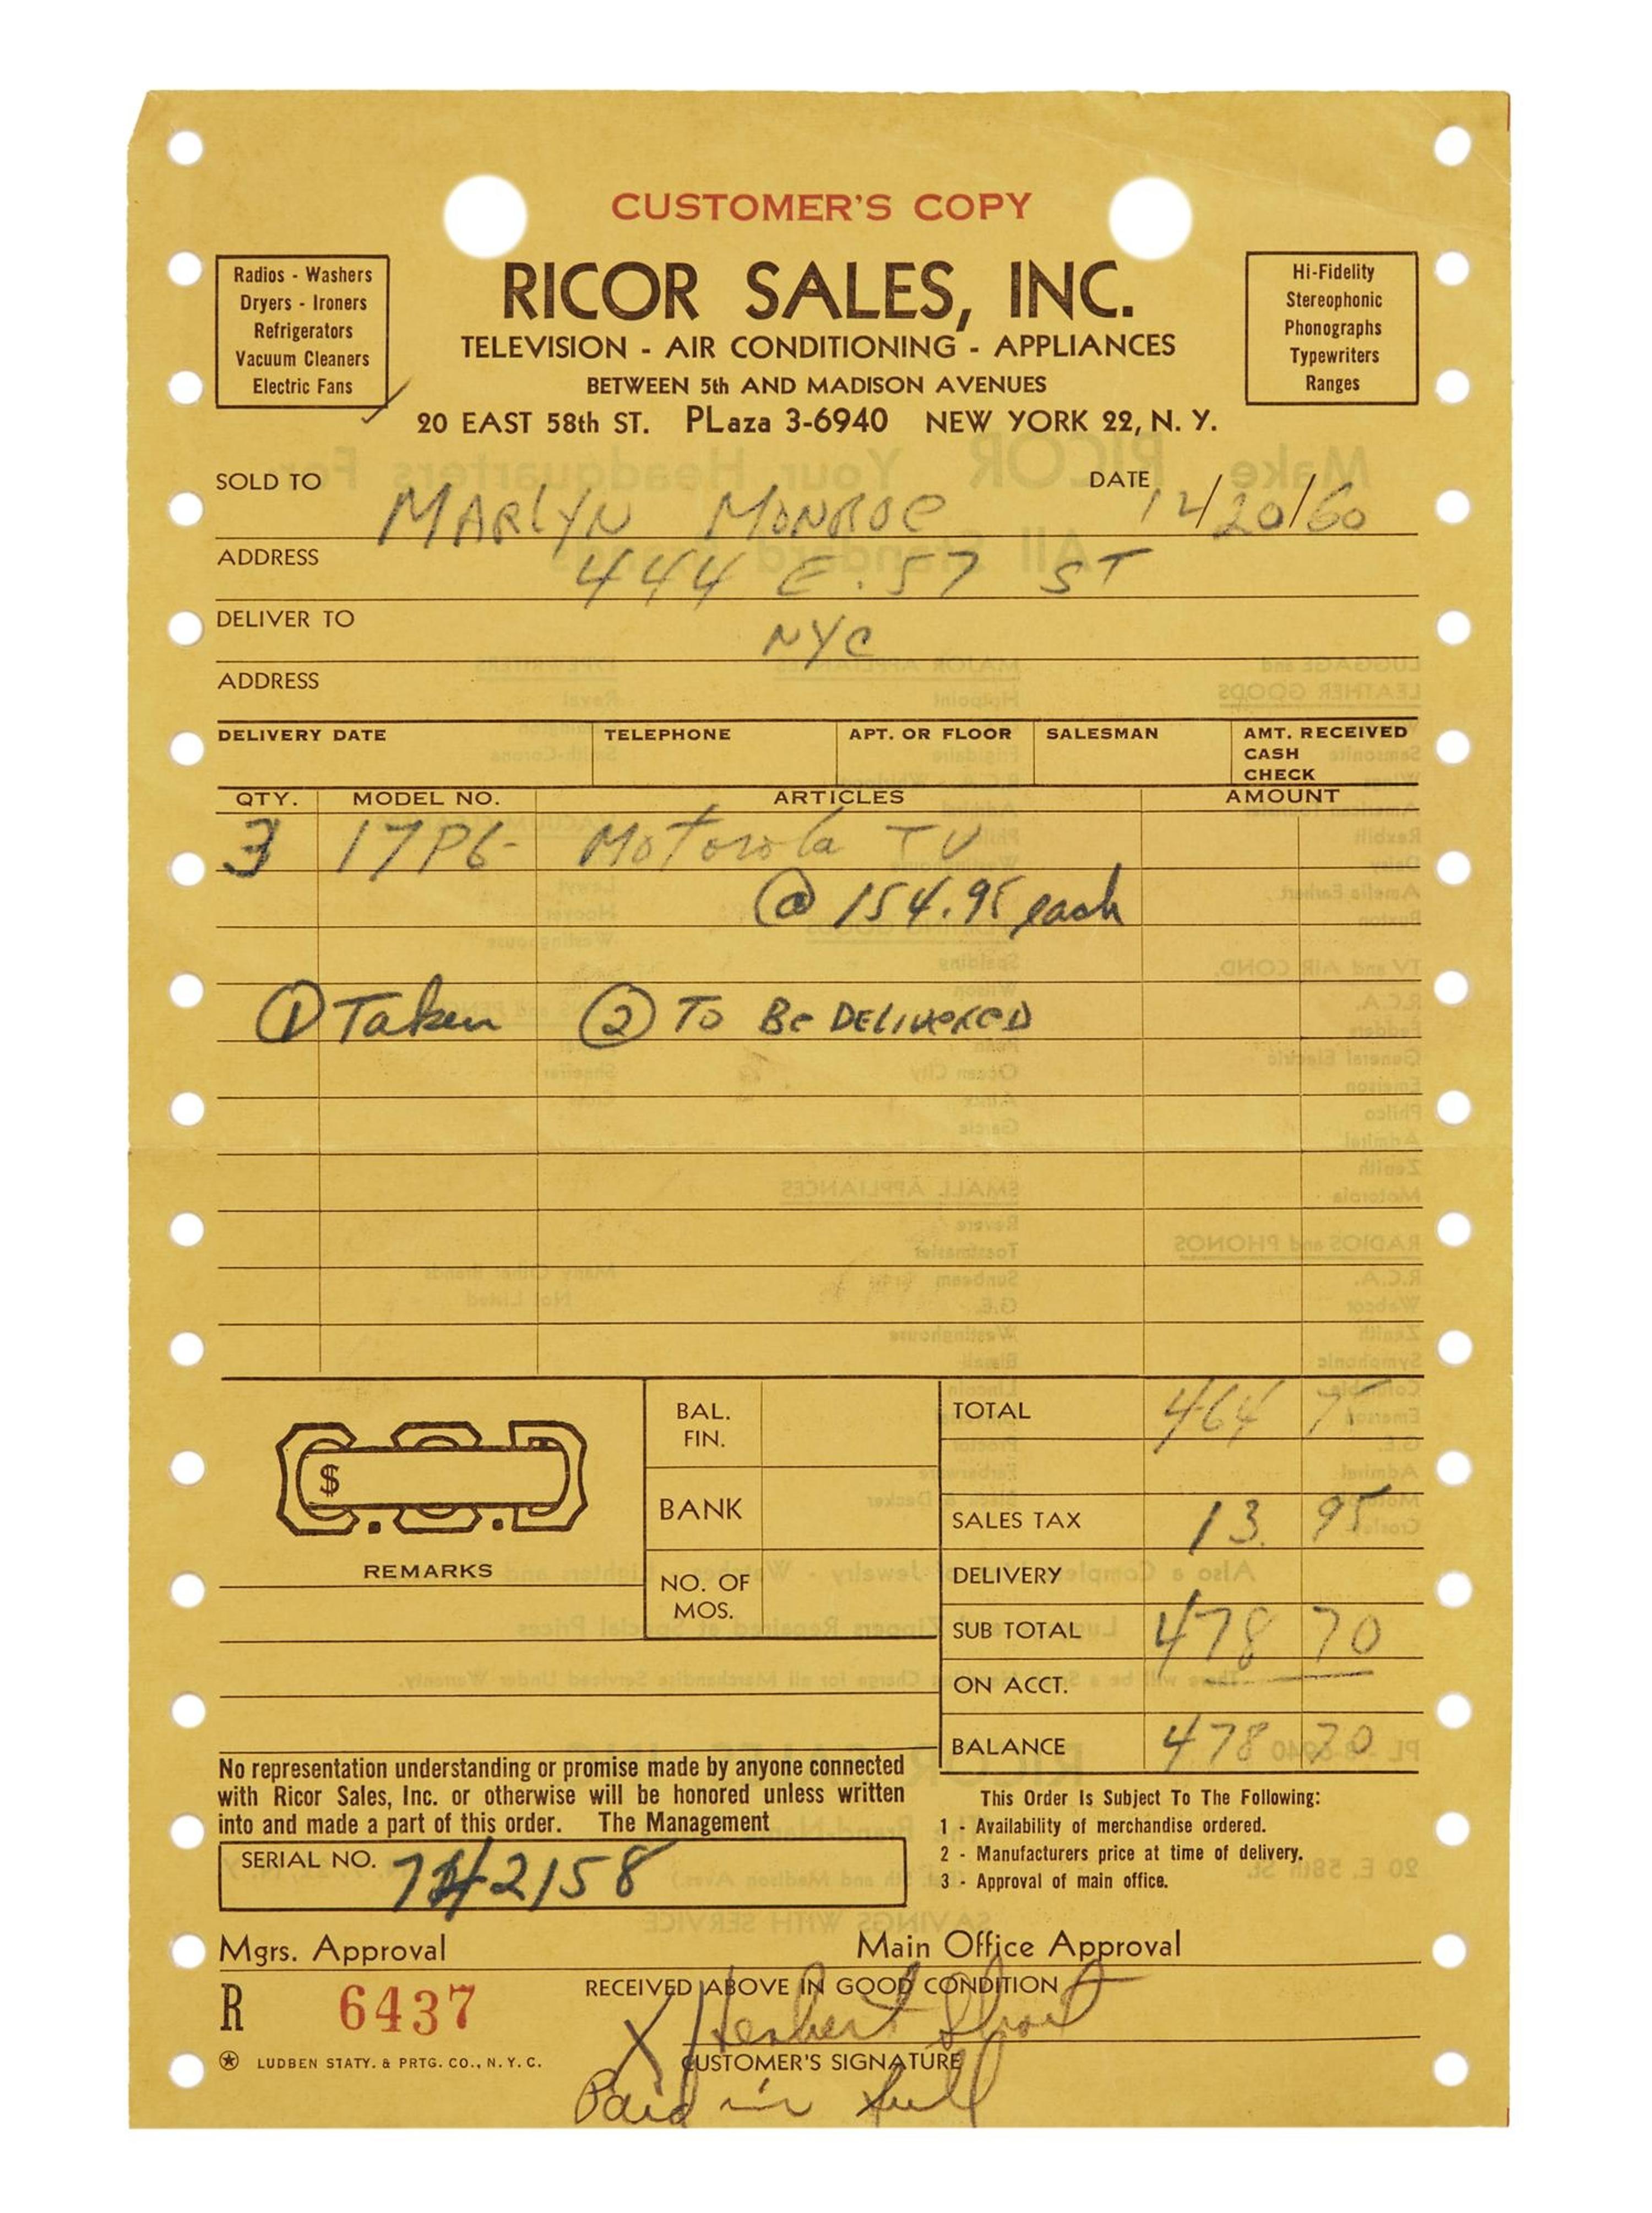 CUSTOMER'S COPY
Radios - Washers
Dryers - Ironers
Refrigerators
Vacuum Cleaners
Electric Fans
RICOR SALES, INC.
TELEVISION - AIR CONDITIONING - APPLIANCES
BETWEEN 5th AND MADISON AVENUES
20 EAST 58th ST. PLaza 3-6940 NEW YORK 22, N. Y.
Hi-Fidelity
Stereophonic
Phonographs
Typewriters
Ranges
SOLD TO MARlYN MONROe DATE 12/20/60
ADDRESS 444 E. 57 ST
DELIVER TO NYC
ADDRESS
DELIVERY DATE TELEPHONE APT. OR FLOOR SALESMAN AMT. RECEIVED
CASH
CHECK
QTY. MODEL NO. ARTICLES AMOUNT
3 17P6- Motorola TV
@ 154.95 each
① Taken ② To Be DELIVeReD
BAL. FIN.
BANK
NO. OF MOS.
TOTAL 464 75
SALES TAX 13. 95
DELIVERY
SUB TOTAL 478 70
ON ACCT.
BALANCE 478 70
C.O.D.
$
REMARKS
No representation understanding or promise made by anyone connected
with Ricor Sales, Inc. or otherwise will be honored unless written
into and made a part of this order. The Management
This Order Is Subject To The Following:
1 - Availability of merchandise ordered.
2 - Manufacturers price at time of delivery.
3 - Approval of main office.
SERIAL NO.
Mgrs. Approval Main Office Approval
R 6437
RECEIVED ABOVE IN GOOD CONDITION
X Herbert
CUSTOMER'S SIGNATURE
Paid in full
LUDBEN STATY. & PRTG. CO., N. Y. C.